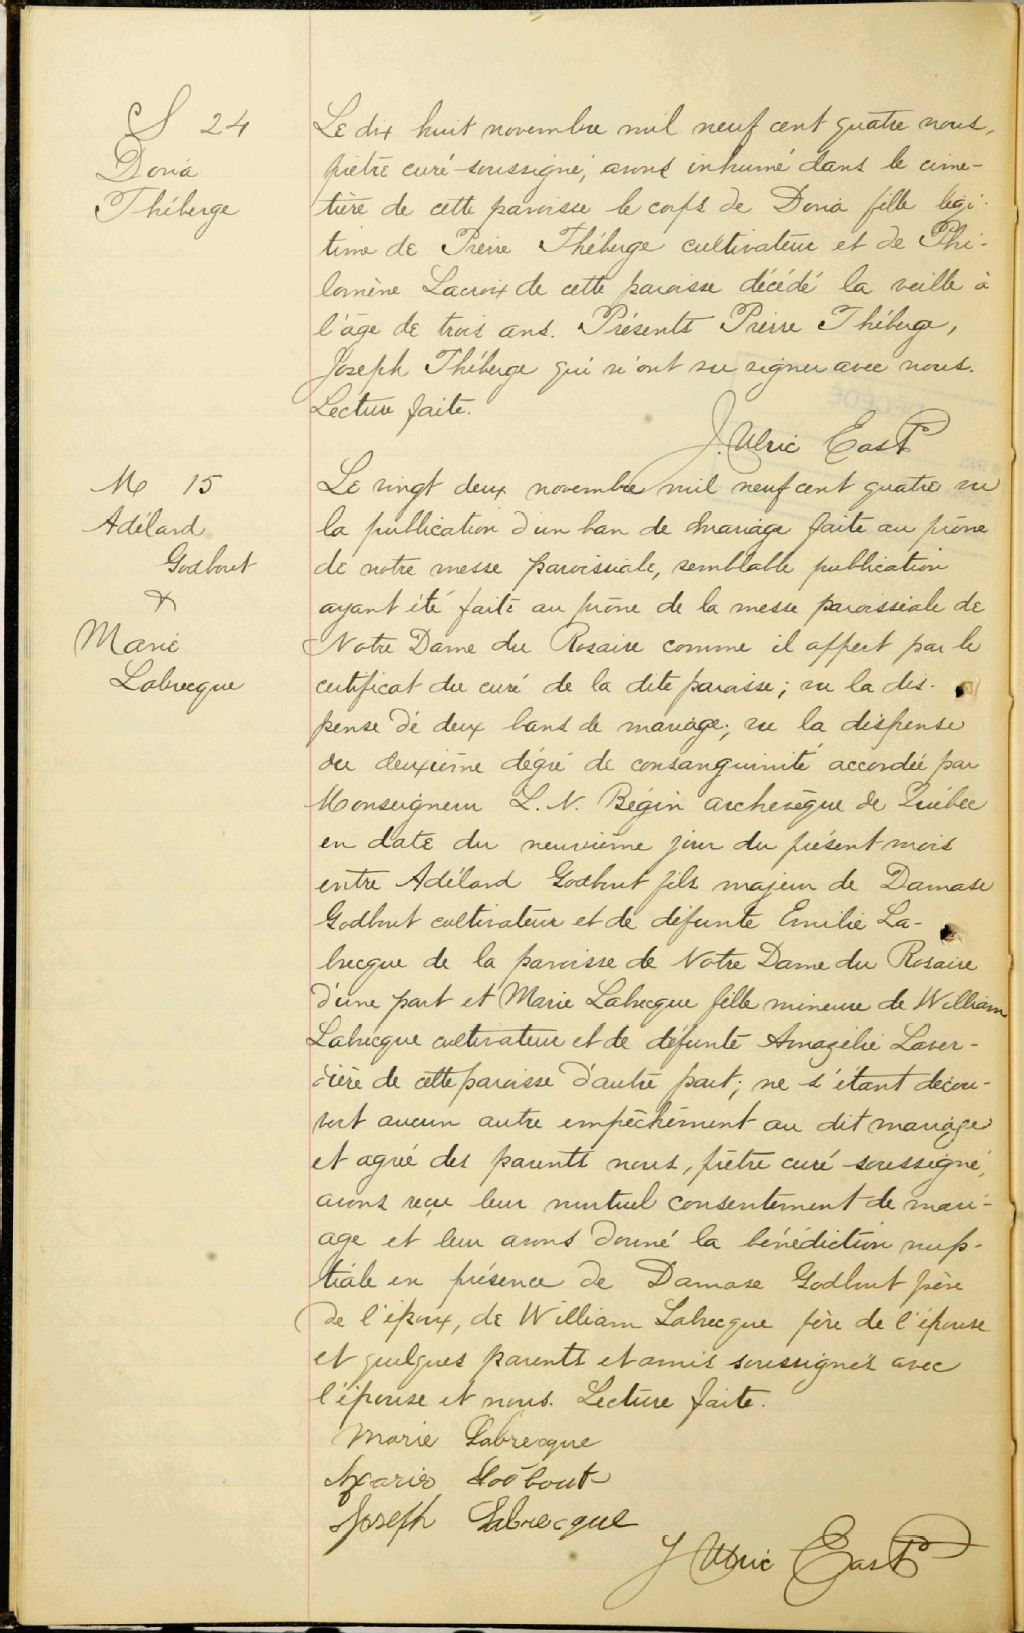 S 24
Dona
Théberge
Le dix huit novembre mil neuf cent quatre nous,
prêtre curé soussigné, avons inhumé dans le cime-
tière de cette paroisse le corps de Dona fille légi-
time de Pierre Théberge cultivateur et de Phi-
lomène Lacroix de cette paroisse décédé la veille à
l'âge de trois ans. Présents Pierre Théberge,
Joseph Théberge qui n'ont su signer avec nous.
Lecture faite.
J. Ulric East
M 15
Adélard
Godbout
&
Marie
Labrecque
Le vingt deux novembre mil neuf cent quatre vu
la publication d'un ban de mariage faite au prône
de notre messe paroissiale, semblable publication
ayant été faite au prône de la messe paroissiale de
Notre Dame du Rosaire comme il appert par le
certificat du curé de la dite paroisse; vu la dis-
pense de deux bans de mariage; vu la dispense
du deuxième dégré de consanguinité accordée par
Monseigneur L. N. Bégin archevêque de Québec
en date du neuvième jour du présent mois
entre Adélard Godbout fils majeur de Damase
Godbout cultivateur et de défunte Emilie La-
brecque de la paroisse de Notre Dame du Rosaire
d'une part et Marie Labrecque fille mineure de William
Labrecque cultivateur et de défunte Amazélie Laver-
dière de cette paroisse d'autre part; ne s'étant décou-
vert aucun autre empêchement au dit mariage
et agréé des parents nous, prêtre curé soussigné,
avons reçu leur mutuel consentement de mari-
age et leur avons donné la bénédiction nup-
tiale en présence de Damase Godbout père
de l'époux, de William Labrecque père de l'épouse
et quelques parents et amis soussignés avec
l'épouse et nous. Lecture faite.
Marie Labrecque
Godbout
Joseph Labrecque
J Ulric East